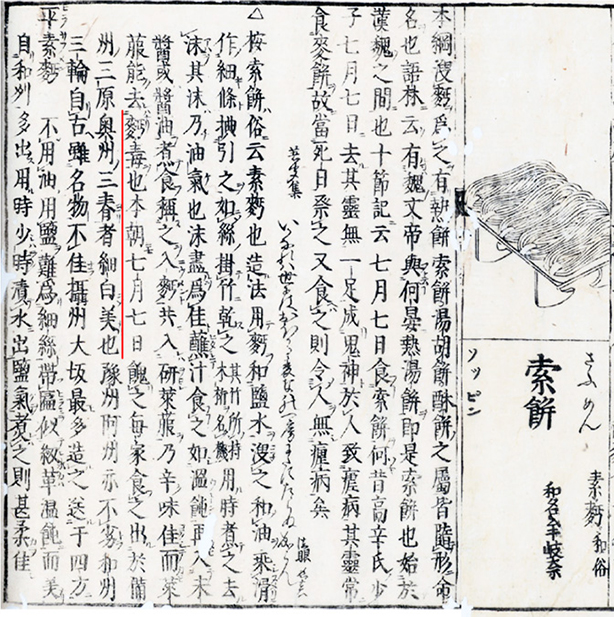 素麪 和俗
和名 牟岐奈
さふめん
索餅
ソツピン
本綱溲麪爲之有熱餅索餅湯胡餅酥餅之屬皆隨形命
名也語林云有魏文帝與何晏熱湯餅即是索餅也始於
漢魏之間也十節記云七月七日食索餅何昔高辛氏少
子七月七日去其靈無一足成鬼神於人致瘧病其靈常
食麥餅故當死日祭之又食之則令人無瘧病矣
△按索餅俗云素麪也造法用麪和鹽水溲之和油乘滑
作細條拽引之如絲掛竹乾之 其竹所持 名機 用時煮之去
沫其沫乃油氣也沫盡爲佳蘸汁食之如温飩再入未
醬或醬油煮食稱之入麪共入研萊菔乃辛味佳而萊
菔能去麪毒也本朝七月七日餽之毎家食之出於備
州三原奥州三春者細白美也豫州阿州亦不劣和州
三輪自古雖名物不佳攝州大坂最多造之送于四方
平素麪 不用油用鹽難爲細絲帶匾似紐革温飩而美
自和州多出用時少時漬水出鹽氣煮之則甚柔佳